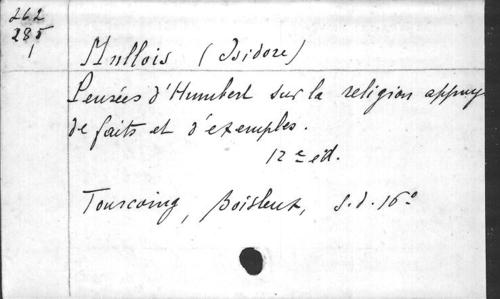 262
285
1
Mullois (Isidore)
Pensées d'Humbert sur la religion appuy
de faits et d'exemples.
12e ed.
Tourcoing, s.d. 16°